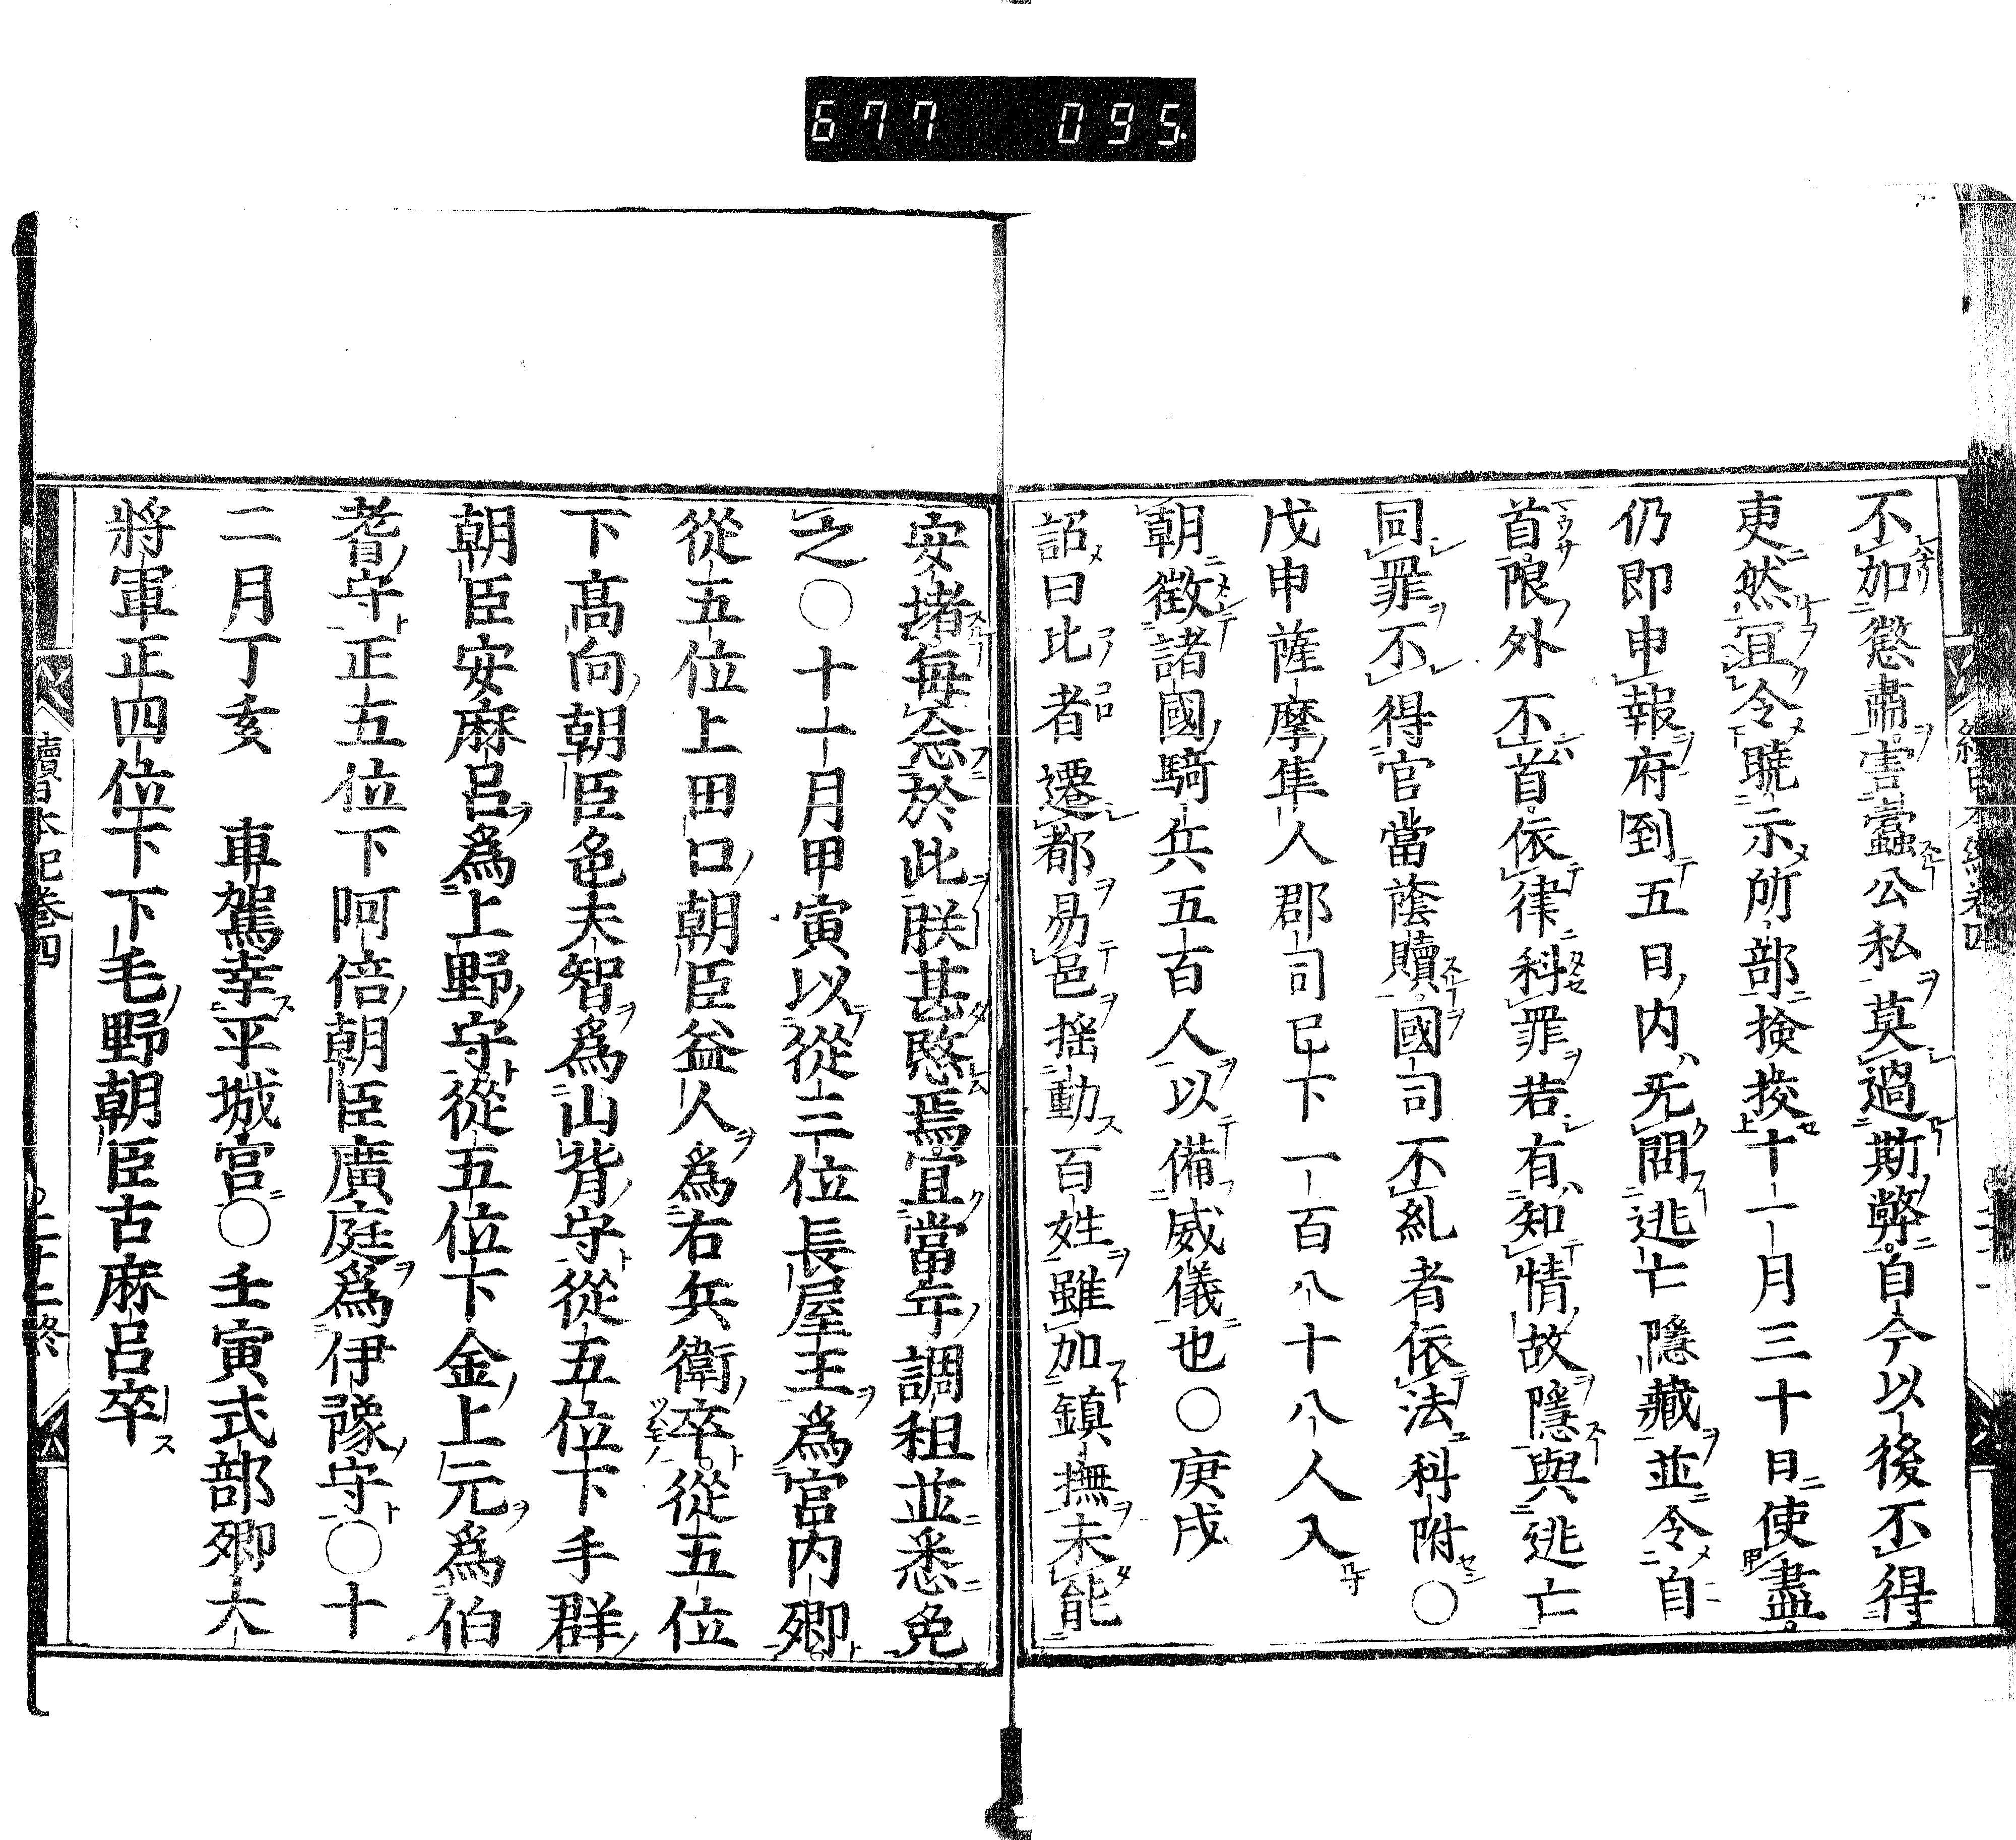 677 095
不加懲肅害蠹公私莫過斯弊自今以後不得
更然冝令曉示所部捡挍十一月三十日使盡
仍即申報府到五日内旡問逃亡隱藏並令自
首限外不首依律科罪若有知情故隱與逃亡
同罪不得官當蔭贖國司不糺者依法科附〇
戊申薩摩隼人郡司已下一百八十八人入
朝徵諸國騎兵五百人以備威儀也〇庚戌
詔曰比者遷都易邑揺動百姓雖加鎮撫未能
安堵每念於此朕甚愍焉宜當年調租並悉免
之〇十一月甲寅以從三位長屋王爲宮内卿
從五位上田口朝臣益人爲右兵衛率從五位
下高向朝臣色夫智爲山背守從五位下平群
朝臣安麻呂爲上野守從五位下金上元爲伯
耆守正五位下阿倍朝臣廣庭爲伊豫守〇十
二月丁亥 車駕幸平城宮〇壬寅式部卿大
將軍正四位下下毛野朝臣古麻呂卒
續日本紀卷四 二十二終